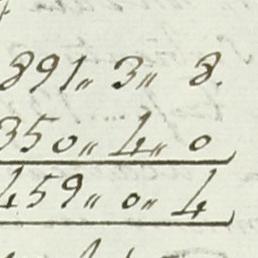 891〃 3〃 8.
350〃 4〃 0
459〃 0〃 4